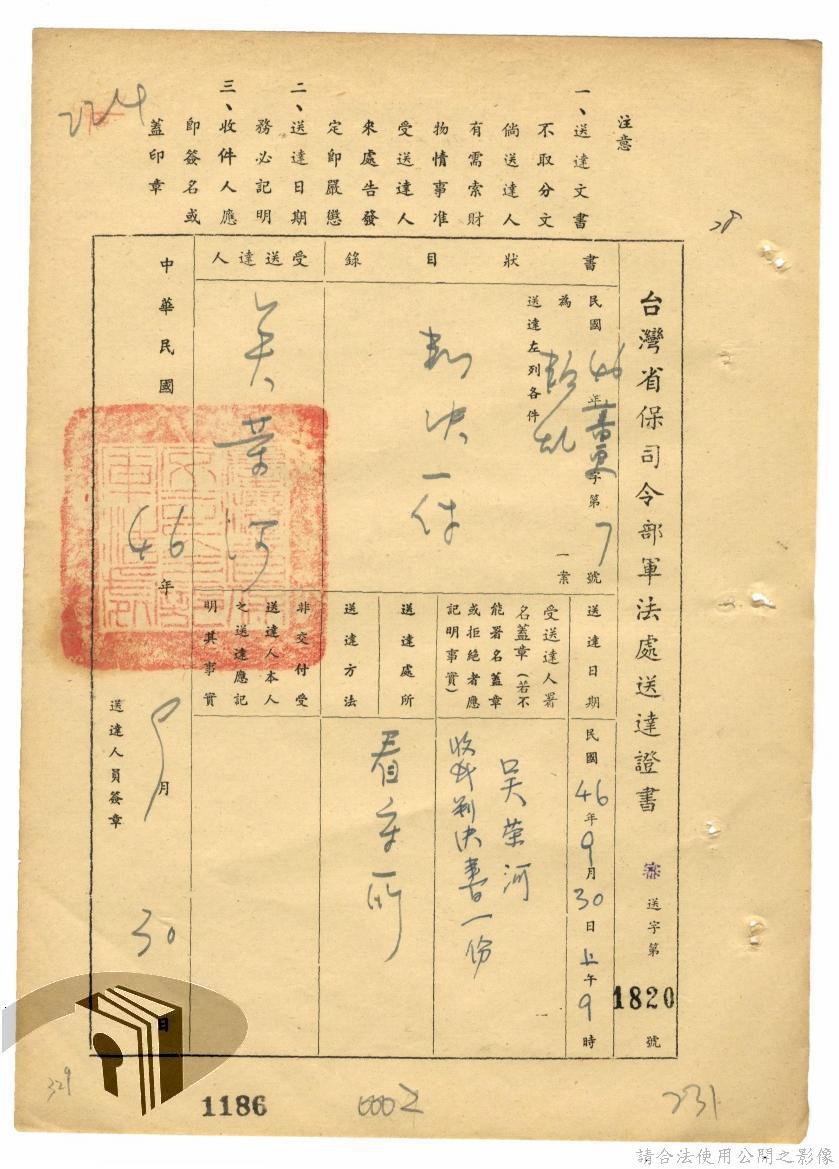 注意
一、送達文書
不取分文
倘送達人
有需索財
物情事准
受送達人
來處告發
定即嚴懲
二、送達日期
務必記明
三、收件人應
即簽名或
蓋印章
台灣省保司令部軍法處送達證書 審 送字第 1820 號
書狀目錄
民國46年審更字第7號
為叛亂一案
送達左列各件
判決一件
受送達人
吳榮河
送達日期
民國46年9月30日上午9時
受送達人署
名蓋章(若不
能署名蓋章
或拒絕者應
記明事實)
吳榮河
收到判決書一份
送達處所
看守所
送達方法
非交付受
送達人本人
之送達應記
明其事實
中華民國46年9月30日
送達人員簽章
224
28
329
1186
231
請合法使用公開之影像